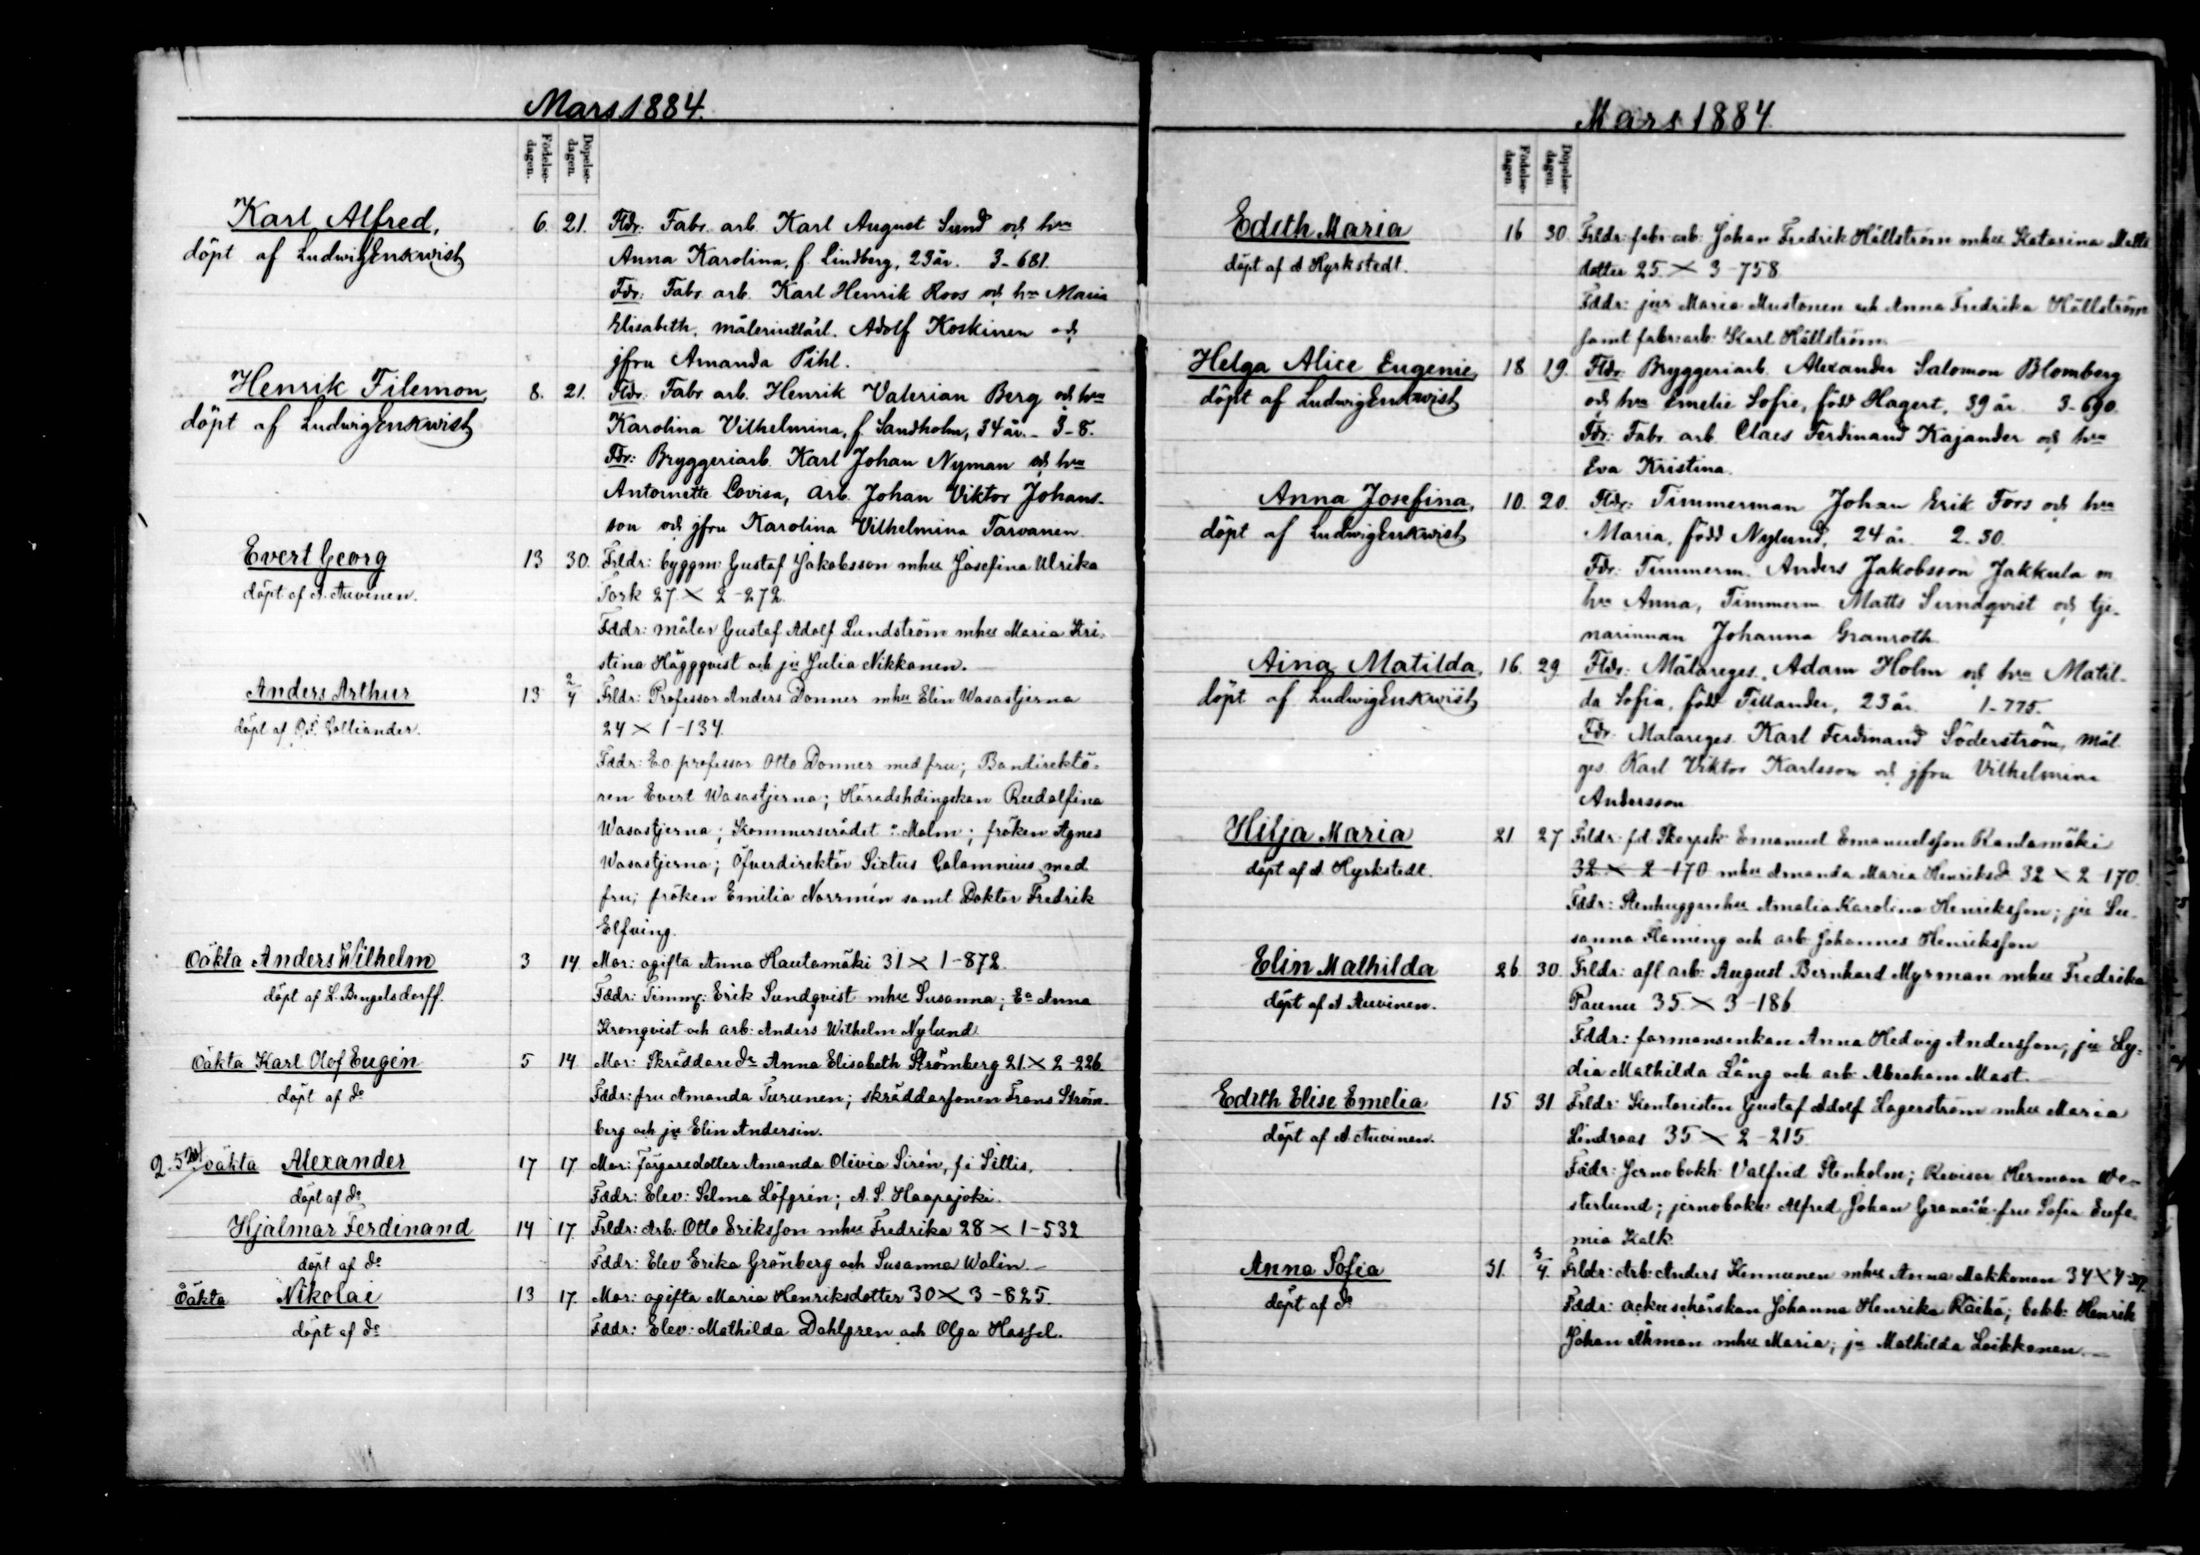 Mars 1884.
Födelse-dagen. Döpelse-dagen.
Karl Alfred, 6. 21. Fldr: Fabr. arb. Karl August Sund och hu
döpt af Ludwig Enkwist Anna Karolina, f. Lindberg, 23 år. 3-681.
Fdr: Fabr. arb. Karl Henrik Roos och hu Maria
Elisabeth, Adolf Koskinen och
jfru Amanda Pihl.
Henrik Filemon, 8. 21. Fldr: Fabr. arb. Henrik Valerian Berg och hu
döpt af Ludwig Enkwist Karolina Vilhelmina, f. Sandholm, 34 år. - 3-8.
Fdr: Bryggeriarb. Karl Johan Nyman och hu
Antoinette Lovisa, arb. Johan Viktor Johans-
son och jfru Karolina Vilhelmina Tarvanen.
Evert Georg 13 30. Frldr: byggm: Gustaf Jakobsson m hu Josefina Ulrika
döpt af A. Auvinen. Tork 27 × 2-272.
Fddr: målar Gustaf Adolf Lundström m hu Maria Kri-
stina Häggqvist och ju Julia Nikkanen.
Anders Arthur 13 2/4 Frldr: Professor Anders Donner m hu Elin Wasastjerna
döpt af O.I. Colliander. 24 × 1-134.
Fddr: E.o. professor Otto Donner med fru; Bandirektö-
ren Evert Wasastjerna; Häradshdingskan Rudolfina
Wasastjerna; Kommerserådet Malm; fröken Agnes
Wasastjerna; Öfverdirektör Sixtus Calamnius med
fru; fröken Emilia Norrmén samt Doktor Fredrik
Elfving.
Oäkta Anders Wilhelm 3 14. Mor: ogifta Anna Hautamäki 31 × 1-872.
döpt af L. Bengelsdorff. Fddr: Timmr: Erik Sundqvist m hu Susanna; Ea Anna
Kronqvist och arb: Anders Wilhelm Nylund.
Oäkta Karl Olof Eugén 5 14. Mor: Skräddaredr Anna Elisabeth Strömberg 21. × 2-226
döpt af do Fddr: fru Amanda Turunen; skräddarsonen Frans Ström-
berg och ju Elin Andersin.
oäkta Alexander 17 17 Mor: Färgaredotter Amanda Olivia Sirén, fr Sillis,
döpt af do Fddr: Elev: Selma Löfgrén; A. S. Haapajoki.
Hjalmar Ferdinand 14 17. Frldr: Arb: Otto Eriksson m hu Fredrika 28 × 1-532
döpt af do Fddr: Elev Erika Grönberg och Susanna Walin.
Oäkta Nikolai 13 17. Mor: ogifta Maria Henriksdotter 30 × 3-825.
döpt af do Fddr: Elev: Mathilda Dahlgren och Olga Hassel.
Mars 1884.
Födelse-dagen Döpelse-dagen
Edith Maria 16 30. Frldr: fabr: arb: Johan Fredrik Hällström m hu Katarina Matts
döpt af A Hyrkstedt. dotter 25 × 3-758
Fddr: ju Maria Mustonen och Anna Fredrika Hällström
samt fabr: arb: Karl Hällström
Helga Alice Eugenie, 18 19. Fldr: Bryggeriarb. Alexander Salomon Blomberg
döpt af Ludwig Enkwist och hu Emelie Sofie, född Hagert, 39 år 3-690.
Fdr: Fabr. arb. Claes Ferdinand Kajander och hu
Eva Kristina.
Anna Josefina, 10. 20. Fldr: Timmerman Johan Erik Fors och hu
döpt af Ludwig Enkwist Maria, född Nylund, 24 år 2-30.
Fdr: Timmerm. Anders Jakobsson Jakkula m
hu Anna, Timmerm Matts Sundqvist och tje-
narinnan Johanna Granroth.
Aina Matilda, 16. 29 Fldr: Målareges. Adam Holm och hu Matil-
döpt af Ludwig Enkwist da Sofia, född Tillander, 23 år 1-775.
Fdr: Målareges. Karl Ferdinand Söderström, Mål.
ges. Karl Viktor Karlsson och jfru Vilhelmina
Andersson
Hilja Maria 21 27 Frldr: fd Skarpsk: Emanuel Emanuelsson Rantamäki
döpt af A. Hyrkstedt. 32 × 2-170 m hu Amanda Maria Henriksd 32 × 2 170.
Fddr: Stenhuggarehu Amalia Karolina Henriksson; ju Su-
sanna Flaming och arb Johannes Henriksson
Elin Mathilda 26. 30. Frldr: afl arb: August Bernhard Myrman m hu Fredrika
döpt af A Auvinen. Paunu 35. × 3-186
Fddr: formansenkan Anna Hedvig Andersson; ju Ly-
dia Mathilda Lång och arb: Abraham Mast.
Edith Elise Emelia 15 31 Frldr: Kontoristen Gustaf Adolf Lagerström m hu Maria
döpt af A. Auvinen. Lindroos 35 × 2-215.
Fddr: Jernvbokh: Valfrid Stenholm; Revisor Herman We-
sterlund; jernvbokh: Alfred Johan fru Sofia Eufe-
mia Kalk.
Anna Sofia 31. 3/4. Frldr: Arb: Anders Kinnunen m hu Anna Makkonen 34 × 4-
döpt af do Fddr: ackuschörskan Johanna Henrika Räihä; bokb: Henrik
Johan Åkman m hu Maria; ju Mathilda Loikkanen.